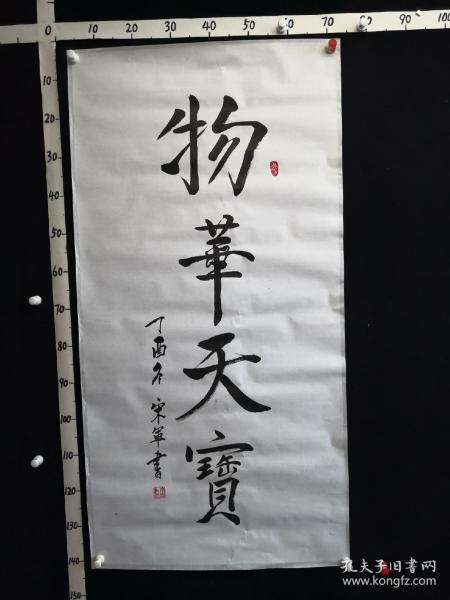 物華天寶
丁酉冬宋軍書
0 10 20 30 40 50 60 70 80 90 100
10
20
30
40
50
60
70
80
90
100
110
120
130
140
150
孔夫子旧书网
www.kongfz.com